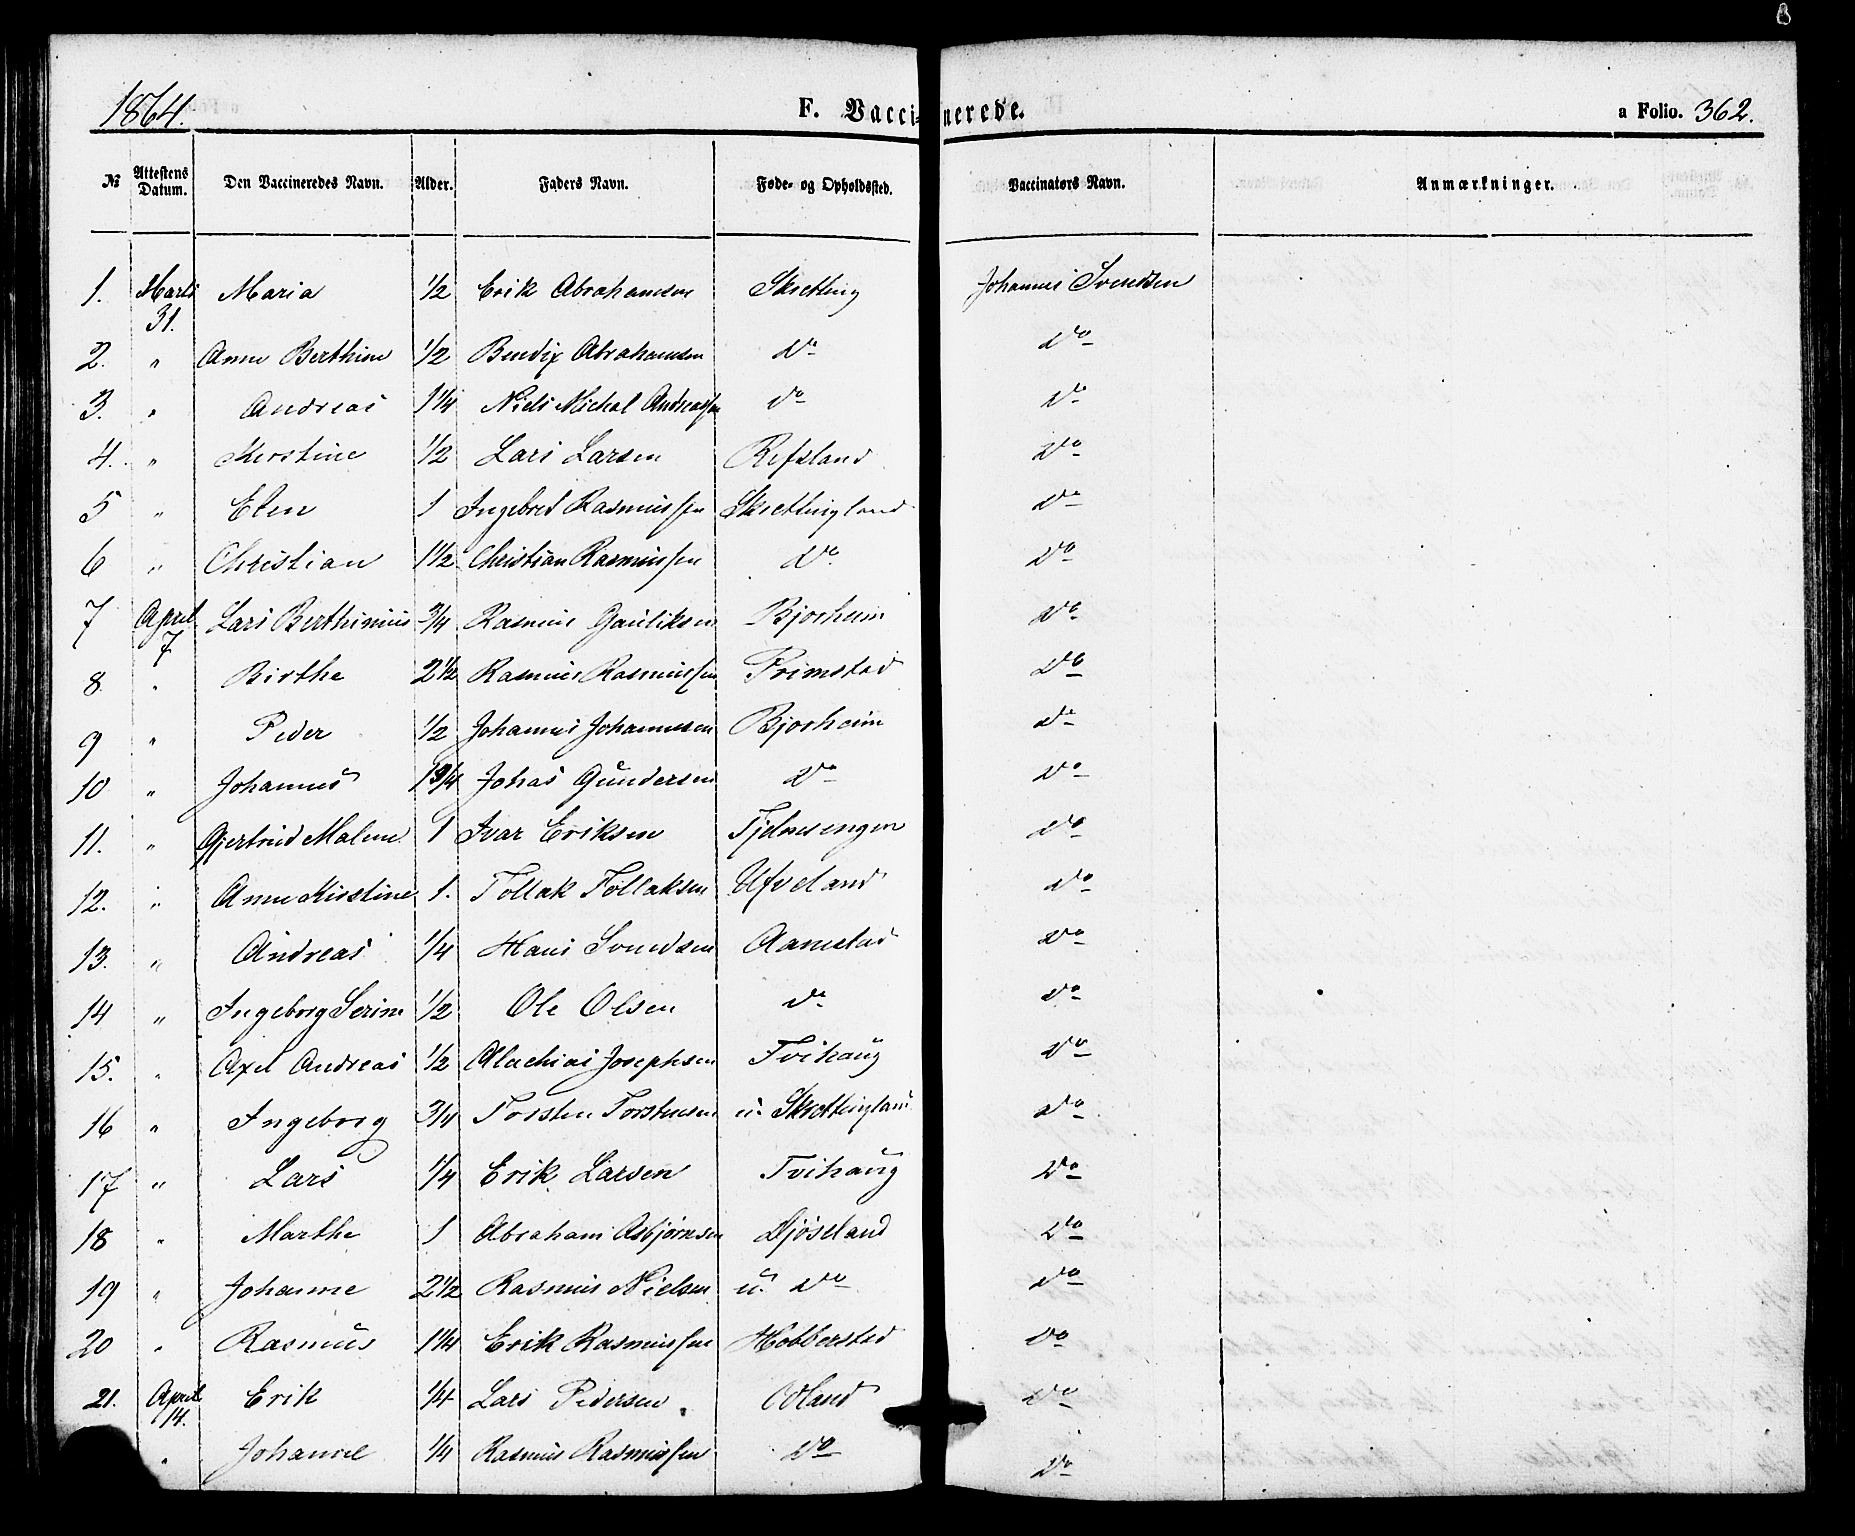 1864. F. Vaccinerede. a Folio. 362.
№ Attestens Datum. Den Vaccineredes Navn. Alder. Faders Navn. Føde- og Opholdssted. Vaccinators Navn. Anmærkninger.
1. Marts 31. Maria 1/2 Erik Abrahamsen Skretting Johannes Svendsen
2. " Anne Berthine 1/2 Bendix Abrahamsen do do
3. " Andreas 1 1/4 Niels Michal Andreassen do do
4. " Kerstine 1/2 Lars Larsen Refsland do
5 " Elen 1 Ingebret Rasmussen Skrettingland do
6 " Christian 1 1/2 Christian Rasmussen do do
7 April 7 Lars Berthinius 3/4 Rasmus Gauliksen Bjorheim do
8 " Birthe 2 1/2 Rasmus Rasmussen Frimstad do
9 " Peder 1/2 Johannes Johannesen Bjorheim do
10 " Johannes 1 3/4 Johas Gundersen do do
11. " Gjertrud Malene 1 Ivar Eriksen do
12. " Anne Kirstine 1. Tollak Tollaksen Ufveland do
13. " Andreas 1/4 Hans Svendsen Aanestad do
14 " Ingeborg Serine 1/2 Ole Olsen do do
15. " Axel Andreas 1/2 Malachias Josephsen Tvihaug do
16 " Ingeborg 3/4 Torsten Torstensen u. Skrettingland do
17 " Lars 1/4 Erik Larsen Tvihaug do
18 " Marthe 1 Abraham Asbjørnsen Djøseland do
19 " Johanne 2 1/2 Rasmus Nielsen u. do do
20 " Rasmus 1 1/4 Erik Rasmussen Hobberstad do
21. April 14. Erik 1/4 Lars Pedersen Odland do
" Johanne 1/4 Rasmus Rasmussen do do